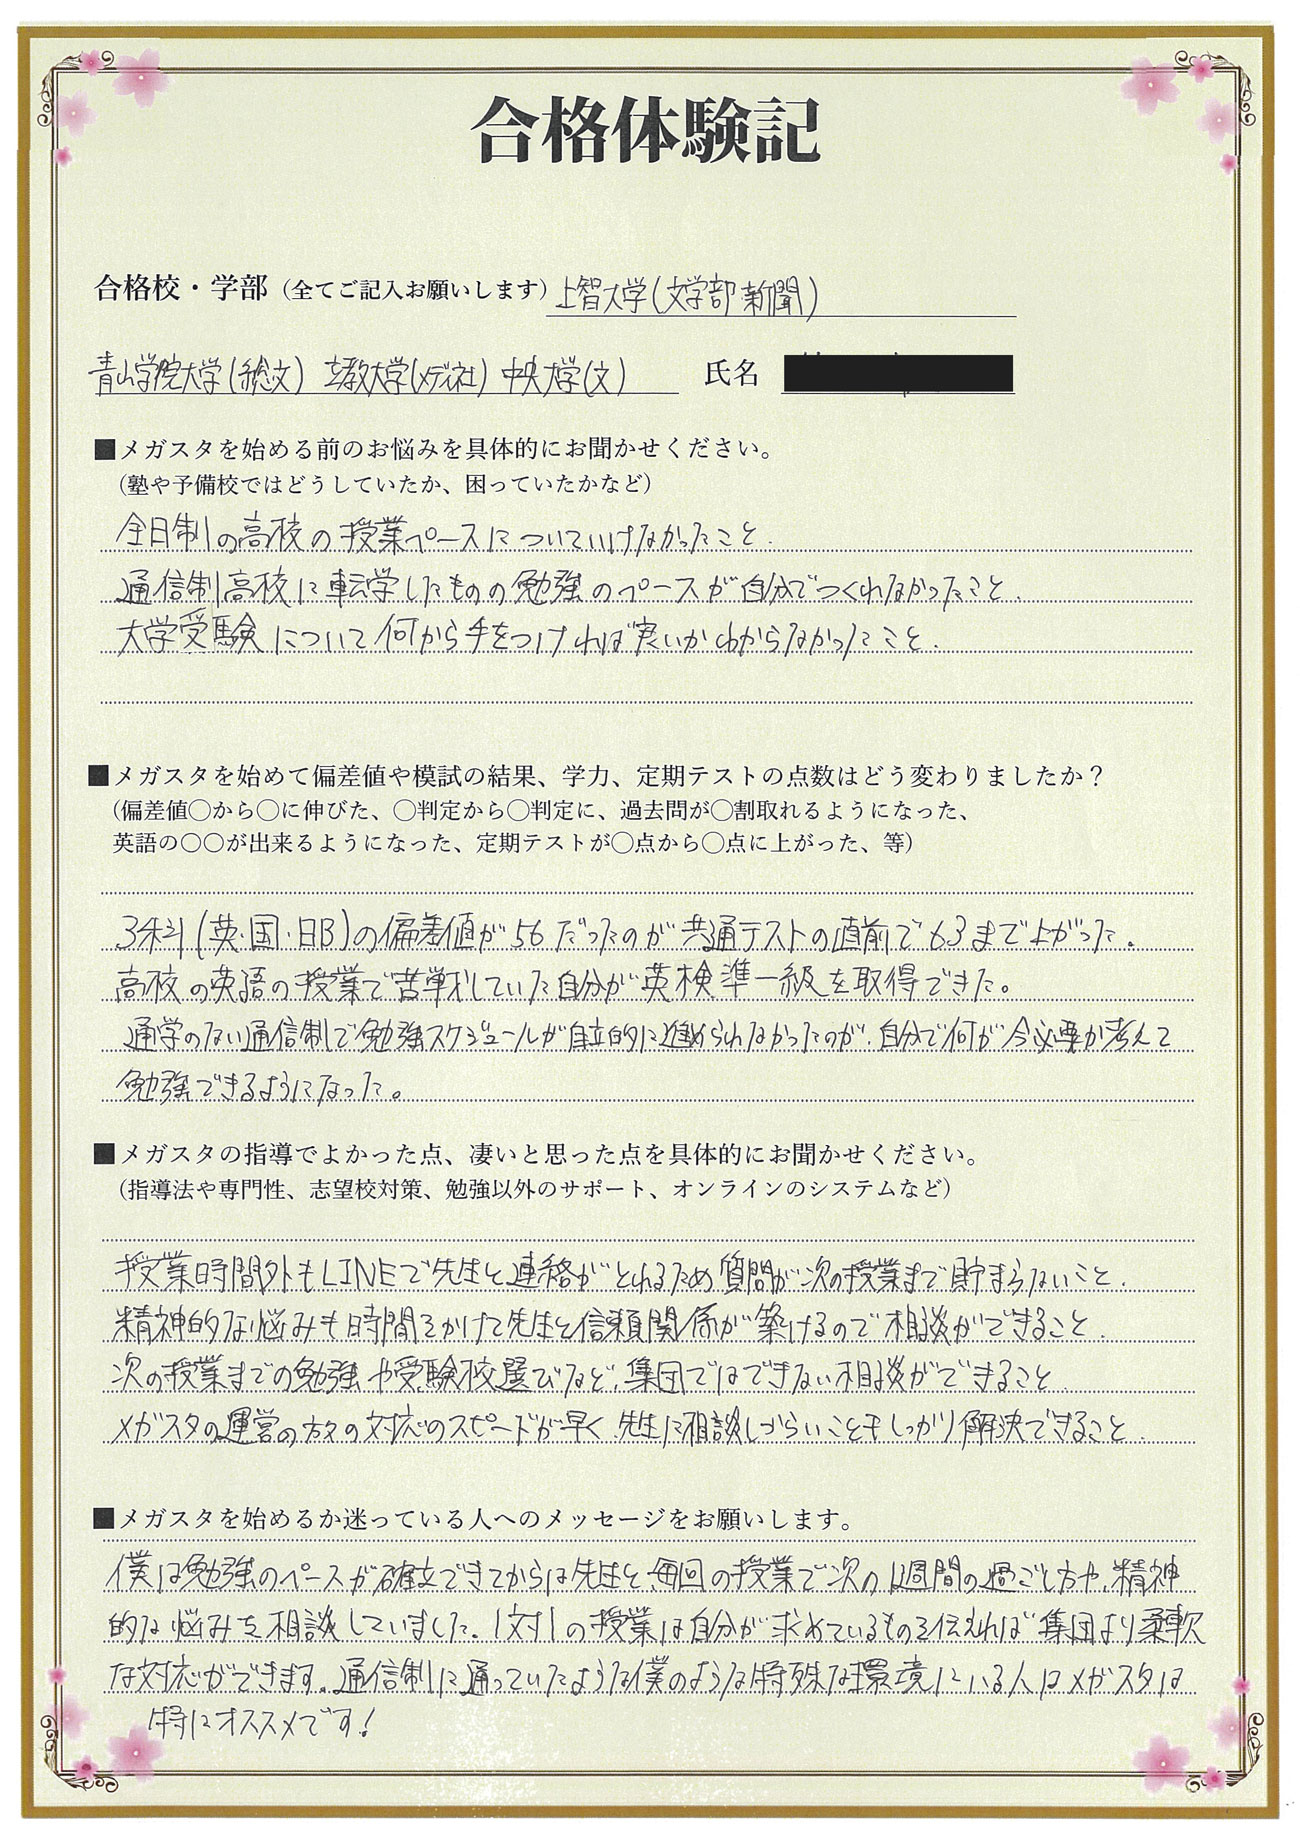 合格体験記
合格校・学部（全てご記入お願いします）上智大学(文学部 新聞)
青山学院大学(総文) 立教大学(メディ社) 中央大学(文) 氏名
■メガスタを始める前のお悩みを具体的にお聞かせください。
（塾や予備校ではどうしていたか、困っていたかなど）
全日制の高校の授業ペースについていけなかったこと.
通信制高校に転学したものの勉強のペースが自分でつくれなかったこと.
大学受験について何から手をつければ良いかわからなかったこと.
■メガスタを始めて偏差値や模試の結果、学力、定期テストの点数はどう変わりましたか？
（偏差値〇から〇に伸びた、〇判定から〇判定に、過去問が〇割取れるようになった、
英語の〇〇が出来るようになった、定期テストが〇点から〇点に上がった、等）
3科(英・国・日B)の偏差値が56だったのが共通テストの直前で63まで上がった.
高校の英語の授業で苦戦していた自分が英検準一級を取得できた。
通学のない通信制で勉強スケジュールが自立的に進められなかったのが、自分で何が今必要か考えて
勉強できるようになった。
■メガスタの指導でよかった点、凄いと思った点を具体的にお聞かせください。
（指導法や専門性、志望校対策、勉強以外のサポート、オンラインのシステムなど）
授業時間外もLINEで先生と連絡がとれるため質問が次の授業まで貯まらないこと.
精神的な悩みも時間をかけて先生と信頼関係が築けるので相談ができること.
次の授業までの勉強や受験校選びなど、集団ではできない相談ができること
メガスタの運営の方々の対応のスピードが早く、先生に相談しづらいこともしっかり解決できること.
■メガスタを始めるか迷っている人へのメッセージをお願いします。
僕は勉強のペースが確立できてからは先生と、毎回の授業で次の1週間の過ごし方や、精神
的な悩みを相談していました。1対1の授業は自分が求めているものを伝えれば集団より柔軟
な対応ができます。通信制に通っていたような僕のような特殊な環境にいる人はメガスタは
特にオススメです！